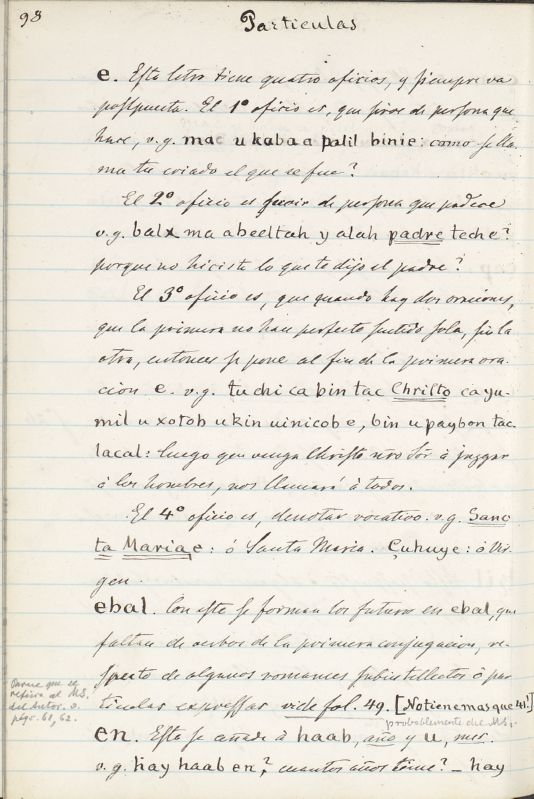 98
Particulas
e. Esta letra tiene quatro oficios, y siempre va
postpuesta. El 1º oficio es, que sirve de persona que
hace, v.g. mac u kaba a palil binie: como se lla-
ma tu criado el que se fue?
El 2º oficio es servir de persona que padece
v.g. balx ma a beeltah y alah padre teche?
porque no hiciste lo que te dijo el padre?
El 3º oficio es, que quando hay dos oraciones,
que la primera no hace perfecto sentido sola, sin la
otra, entonces se pone al fin de la primera ora-
cion e. v.g. tu chi ca bin tac Christo ca yu-
mil u xotob u kin uinicob e, bin u paybon tac-
lacal: luego que venga Christo nro Sor à juzgar
à los hombres, nos llamará à todos.
El 4º oficio es, denotar vocativo. v.g. Sanc-
ta Maria e: ó Santa Maria. Çuhuye: ó Vir-
gen.
ebal. Con este se forman los futuros en ebal, que
faltan de verbos de la primera conjugacion, re-
specto de algunos romances subintellectos ó par-
ticulas expressas vide fol. 49. [No tiene mas que 41!]
Parece que se
refiera al MS.
del Autor. v.
págs. 61, 62.
probablemente del MS.
en. Este se añade à haab, año y u, mes.
v.g. hay haab en? cuantos años tiene? – hay